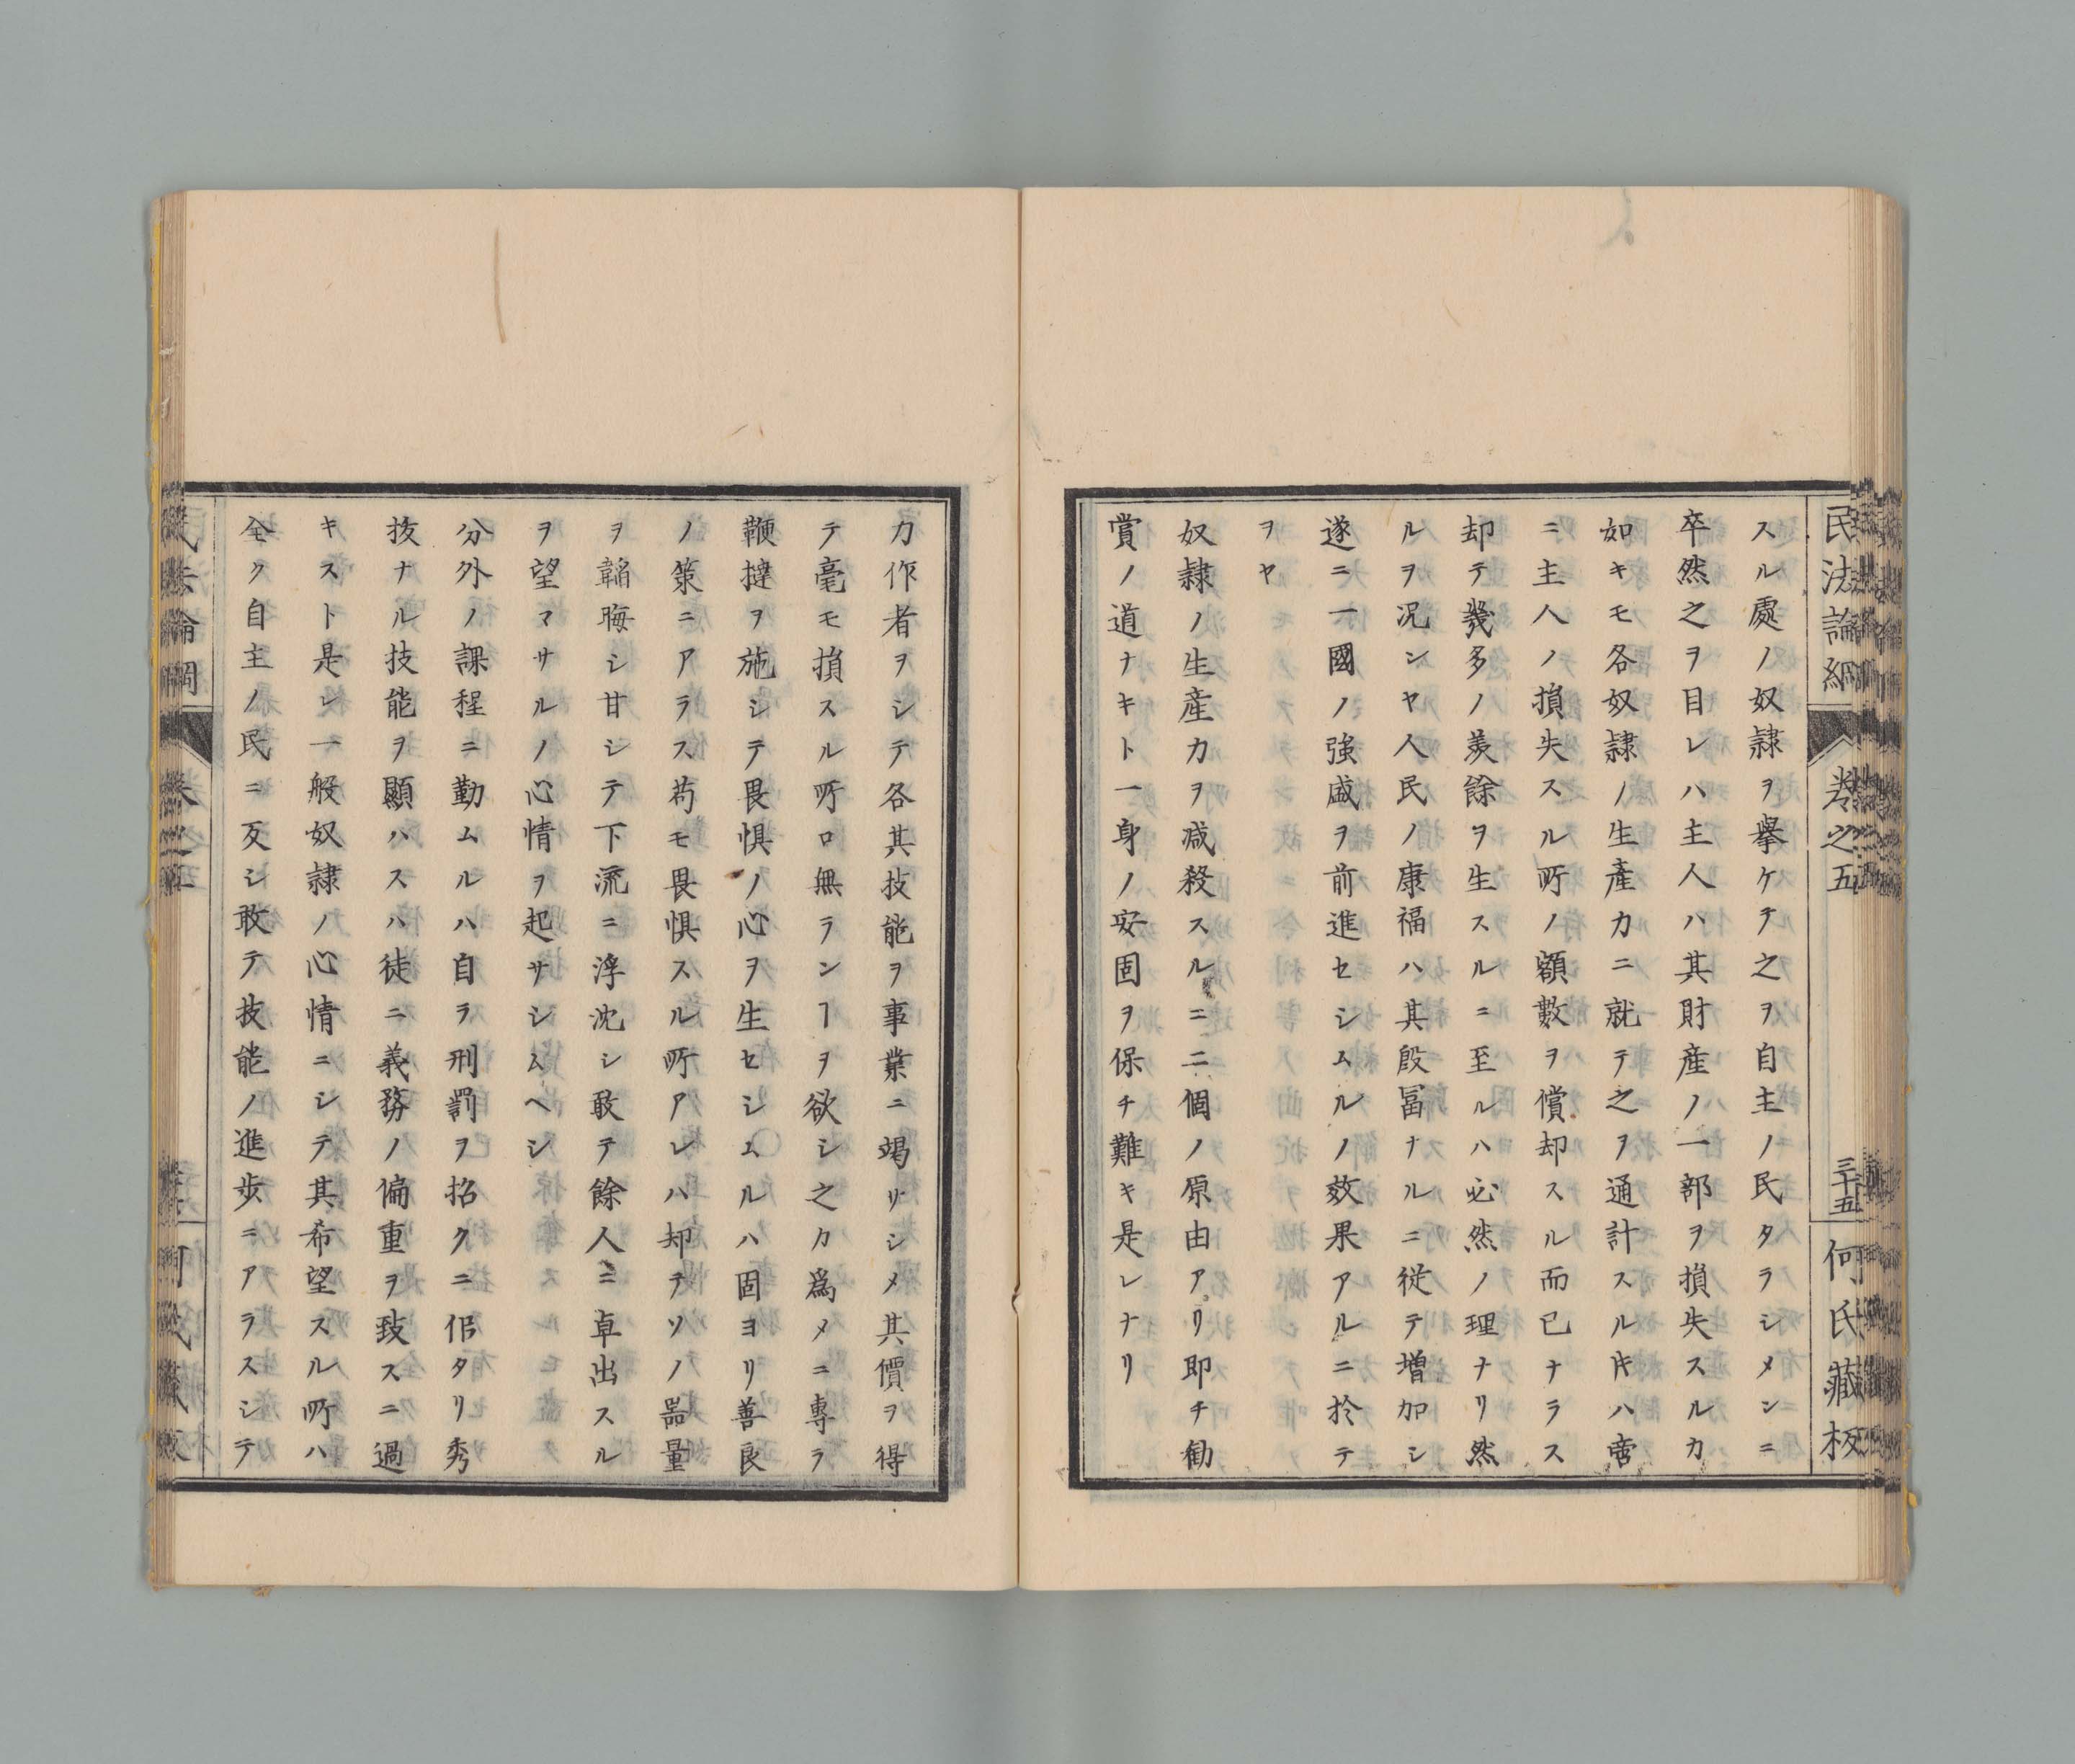 民法論綱
巻之五
三十五
何氏藏板
スル處ノ奴隷ヲ擧ケテ之ヲ自主ノ民タラシメンニ
卒然之ヲ目レハ主人ハ其財産ノ一部ヲ損失スルカ
如キモ各奴隷ノ生産力ニ就テ之ヲ通計スル𪜈ハ啻
ニ主人ノ損失スル所ノ額數ヲ償却スル而已ナラス
却テ幾多ノ羨餘ヲ生スルニ至ルハ必然ノ理ナリ然
ルヲ况ンヤ人民ノ康福ハ其殷冨ナルニ從テ増加シ
遂ニ一國ノ強盛ヲ前進セシムルノ效果アルニ於テ
ヲヤ
奴隷ノ生産力ヲ减殺スルニ二個ノ原由アリ即チ勸
賞ノ道ナキト一身ノ安固ヲ保チ難キ是レナリ
力作者ヲシテ各其技能ヲ事業ニ竭サシメ其價ヲ得
テ毫モ損スル所ロ無ランヿヲ欲シ之カ爲メニ專ラ
鞭撻ヲ施シテ畏惧ノ心ヲ生セシムルハ固ヨリ善良
ノ策ニアラス苟モ畏惧スル所アレハ却テソノ器量
ヲ韜晦シ甘シテ下流ニ浮沈シ敢テ餘人ニ卓出スル
ヲ望マサルノ心情ヲ起サシムヘシ
分外ノ課程ニ勤ムルハ自ラ刑罰ヲ招クニ似タリ秀
抜ナル技能ヲ顯ハスハ徒ニ義務ノ偏重ヲ致スニ過
キスト是レ一般奴隷ノ心情ニシテ其希望スル所ハ
全ク自主ノ民ニ反シ敢テ技能ノ進歩ニアラスシテ